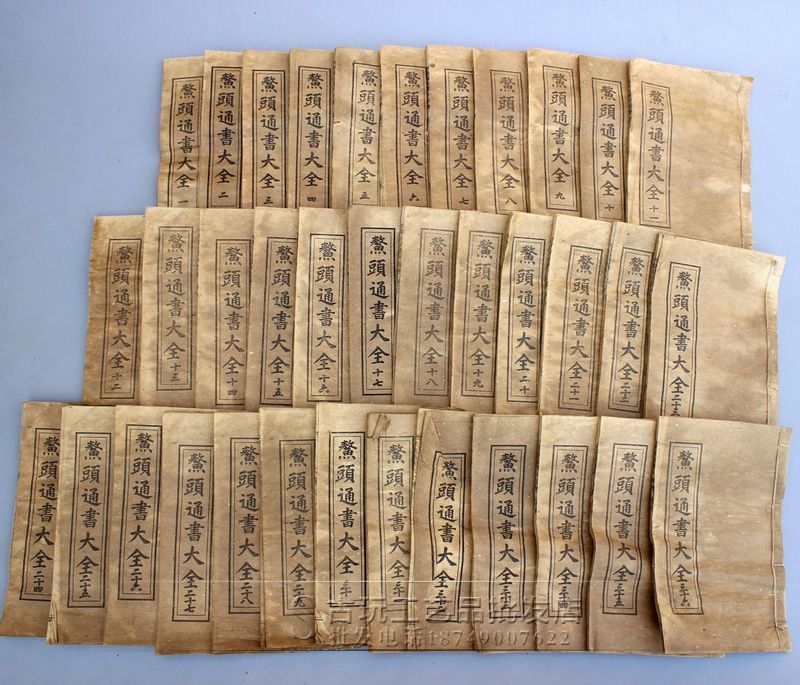 鰲頭通書大全 一
鰲頭通書大全 二
鰲頭通書大全 三
鰲頭通書大全 四
鰲頭通書大全 五
鰲頭通書大全 六
鰲頭通書大全 七
鰲頭通書大全 八
鰲頭通書大全 九
鰲頭通書大全 十
鰲頭通書大全 十一
鰲頭通書大全 十二
鰲頭通書大全 十三
鰲頭通書大全 十四
鰲頭通書大全 十五
鰲頭通書大全 十六
鰲頭通書大全 十七
鰲頭通書大全 十八
鰲頭通書大全 十九
鰲頭通書大全 二十
鰲頭通書大全 二十一
鰲頭通書大全 二十二
鰲頭通書大全 二十三
鰲頭通書大全 二十四
鰲頭通書大全 二十五
鰲頭通書大全 二十六
鰲頭通書大全 二十七
鰲頭通書大全 二十八
鰲頭通書大全 二十九
鰲頭通書大全 三十
鰲頭通書大全
鰲頭通書大全 三十二
鰲頭通書大全
鰲頭通書大全 三十四
鰲頭通書大全 三十五
鰲頭通書大全 三十六
古玩工艺品批发店
批发电话18749007622